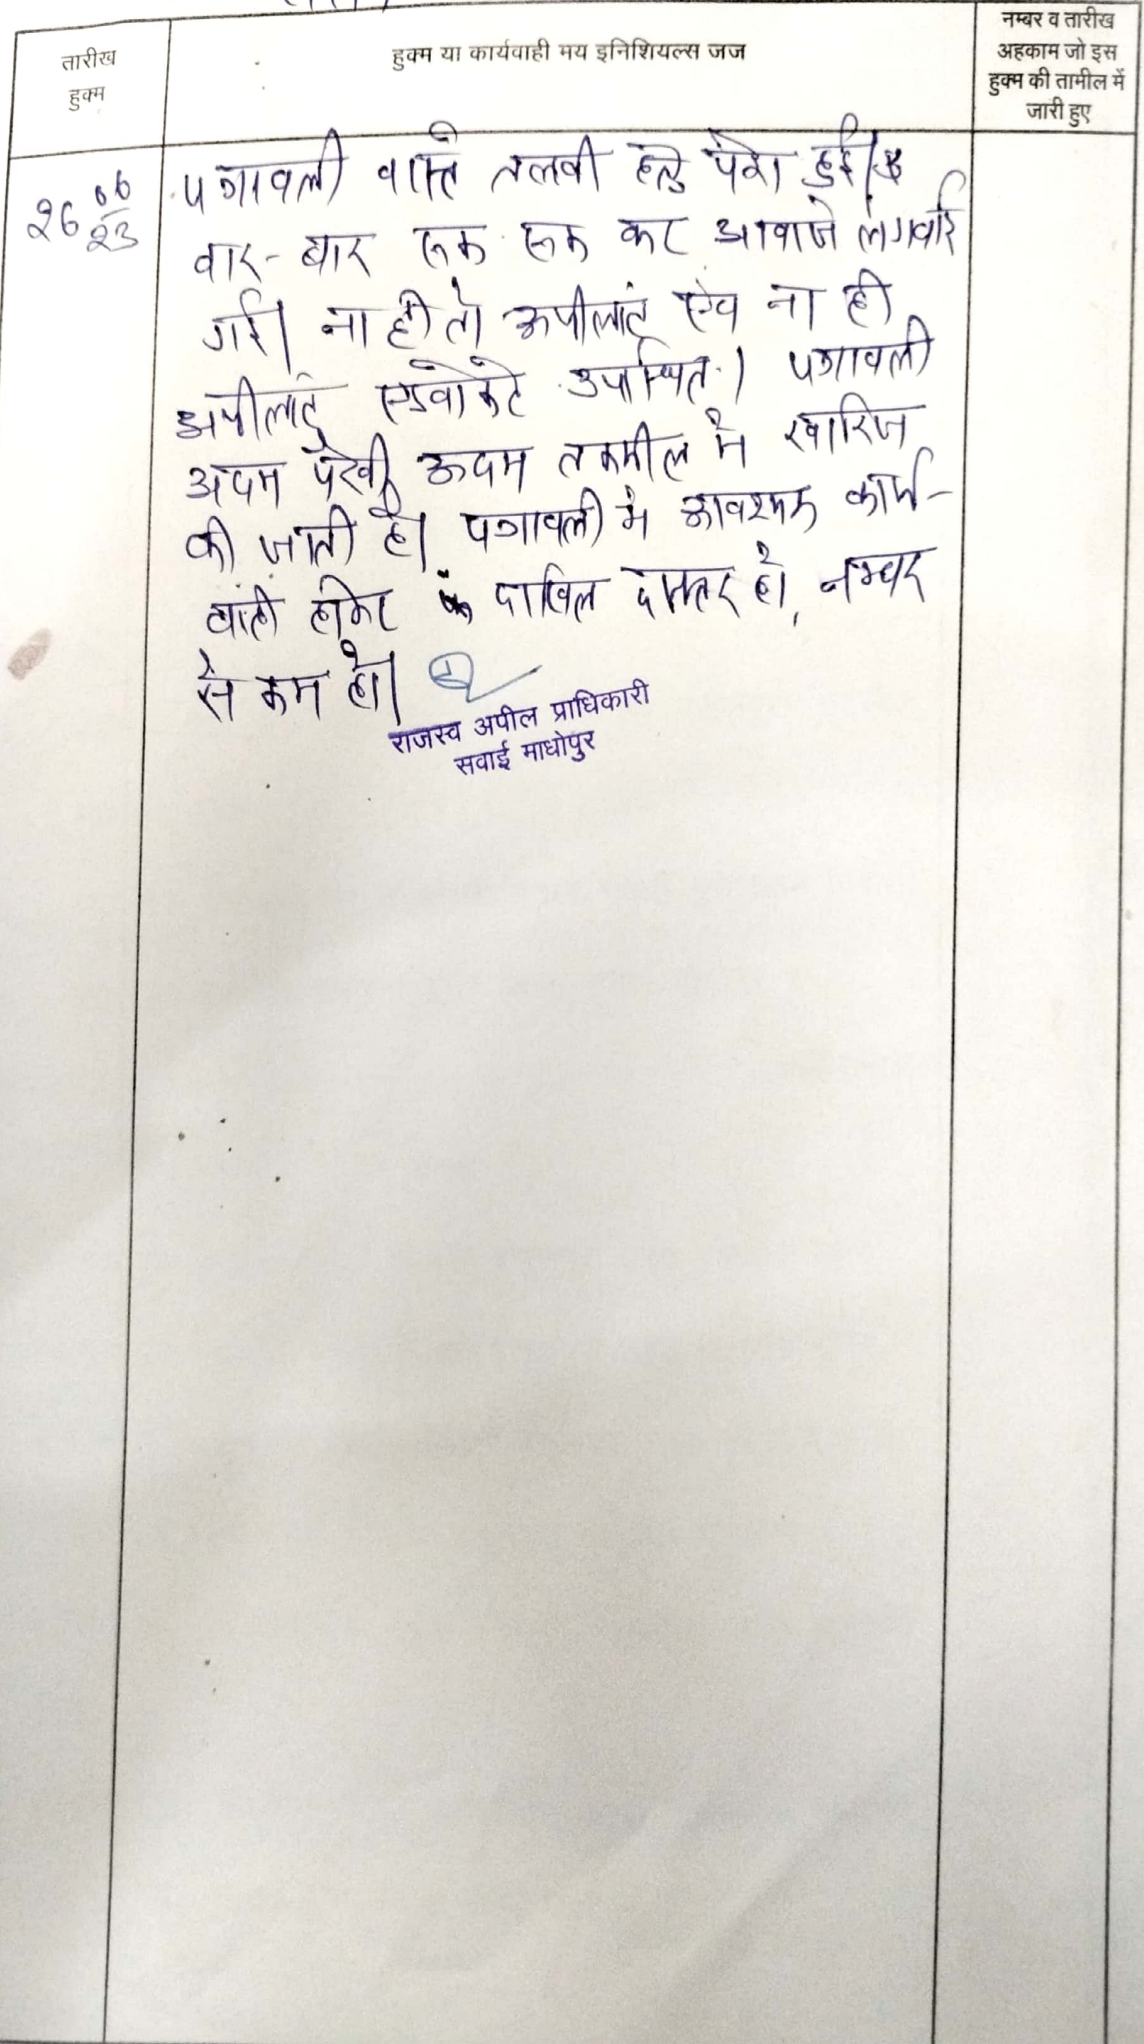 तारीख
हुक्म
हुक्म या कार्यवाही मय इनिशियल्स जज
नम्बर व तारीख
अहकाम जो इस
हुक्म की तामील में
जारी हुए
26 06/23
पत्रावली वास्ते तलवी हेतु पेश हुई।
वार-बार रूक रूक कर आवाजे लगवाई
गई। ना ही तो अपीलांट एंव ना ही
अपीलांट एडवोकेट उपस्थित। पत्रावली
अदम पैरवी अदम तकमील मे खारिज
की जाती है। पत्रावली मे आवश्यक कार्य-
वाही होकर दाखिल दफ्तर हो, नम्बर
से कम हो।
राजस्व अपील प्राधिकारी
सवाई माधोपुर